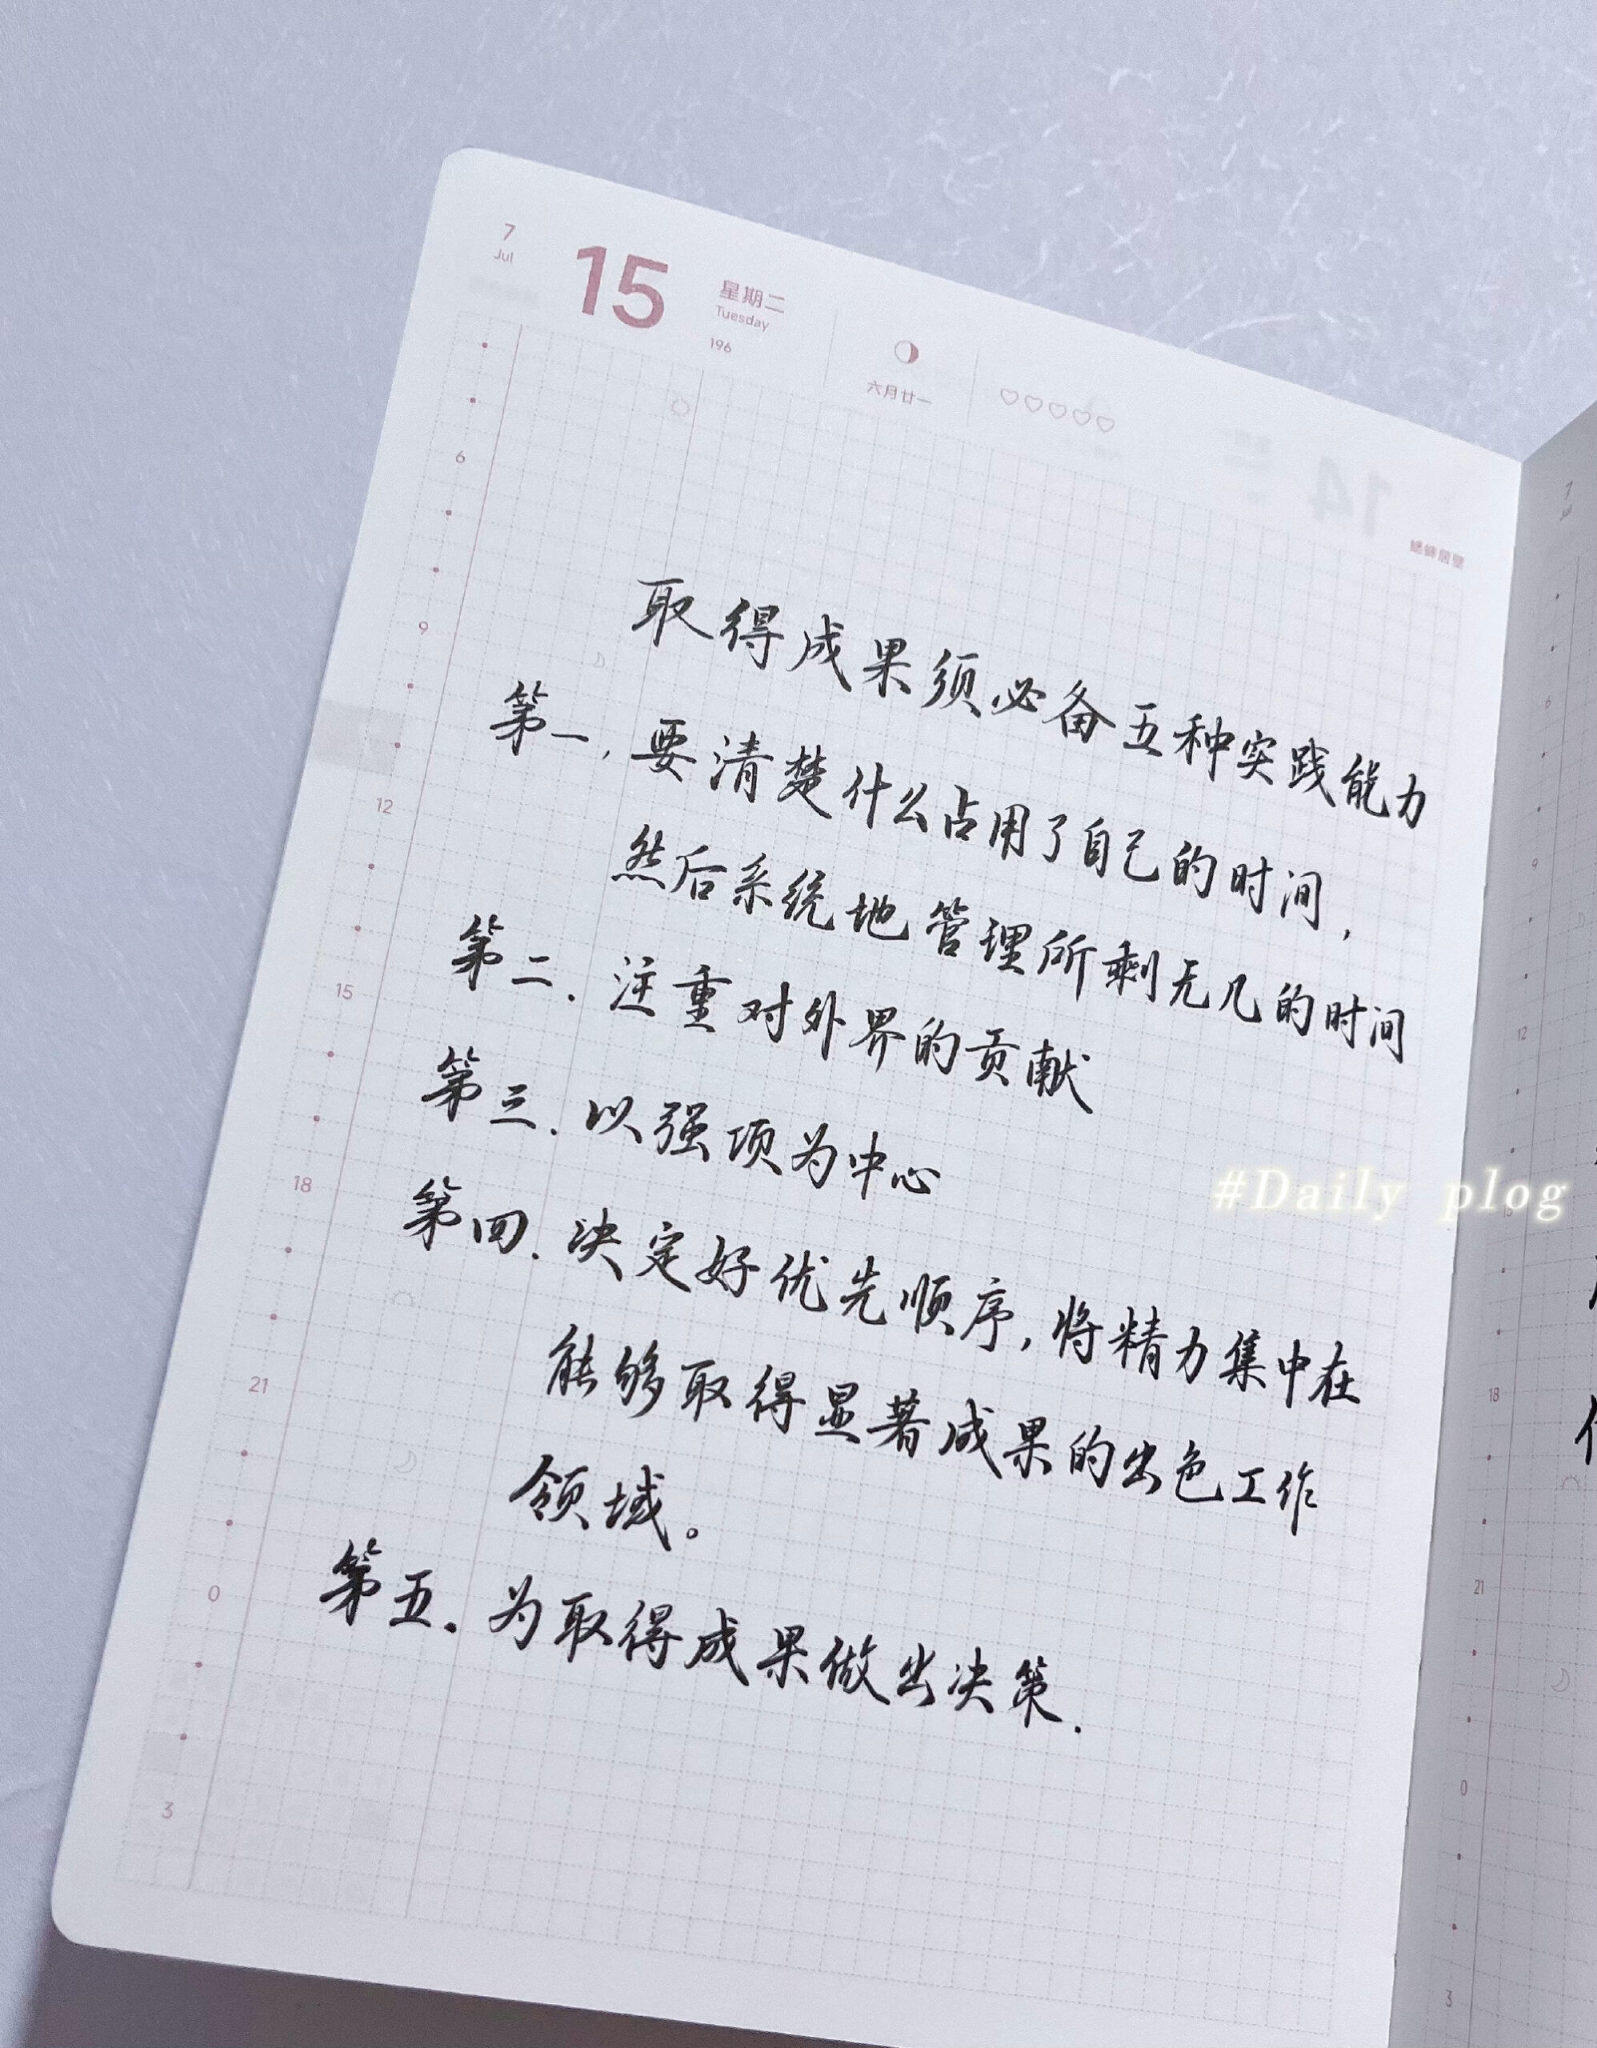 7
Jul
15
星期二
Tuesday
196
六月廿一
蟋蟀居壁
取得成果须必备五种实践能力
第一，要清楚什么占用了自己的时间，
然后系统地管理所剩无几的时间
第二．注重对外界的贡献
第三．以强项为中心
第四．决定好优先顺序，将精力集中在
能够取得显著成果的出色工作
领域。
第五．为取得成果做出决策．
6
9
12
15
18
21
0
3
#Daily plog
7
Jul
6
9
12
15
18
21
0
3